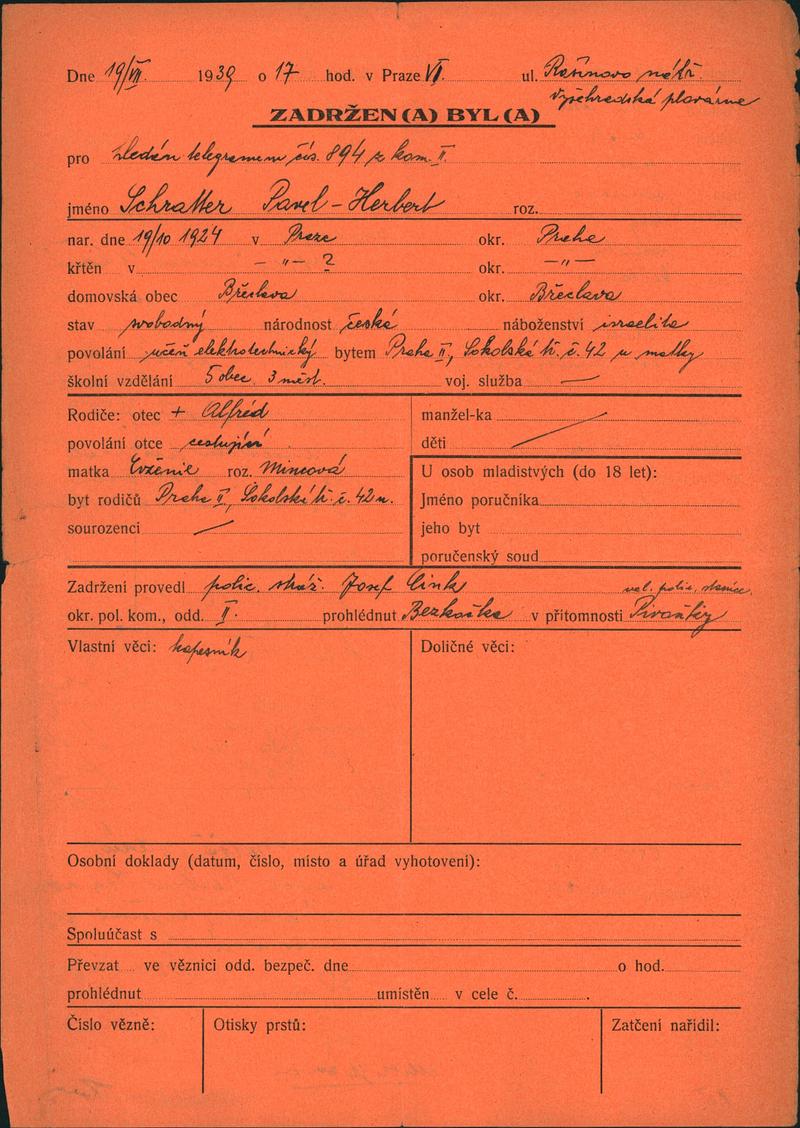 Dne 19/VII. 1939 o 17 hod. v Praze VI. ul. Rašínovo nábř.
Vyšehradská plovárna
ZADRŽEN(A) BYL(A)
pro hledán telegramem čís. 894 z kom. II.
jméno Schratter Pavel - Herbert roz.
nar. dne 19/10 1924 v Praze okr. Praha
křtěn v — " — ? okr. — " —
domovská obec Břeclava okr. Břeclava
stav svobodný národnost česká náboženství israelita
povolání učeň elektrotechnický bytem Praha II, Sokolská tř. č. 42 u matky
školní vzdělání 5 obec. 3 měšť. voj. služba —
Rodiče: otec + Alfréd manžel-ka
povolání otce cestující děti
matka Evženie roz. Mincová U osob mladistvých (do 18 let):
byt rodičů Praha II, Sokolská tř. č. 42 n. Jméno poručníka
sourozenci — jeho byt
poručenský soud
Zadržení provedl polic. stráž. Josef Cink vel. polic. stanice
okr. pol. kom., odd. II. prohlédnut Bezkočka v přitomnosti Pivoňky
Vlastní věci: kapesník Doličné věci:
Osobní doklady (datum, číslo, místo a úřad vyhotovení):
Spoluúčast s
Převzat ve věznici odd. bezpeč. dne o hod.
prohlédnut umístěn v cele č.
Číslo vězně: Otisky prstů: Zatčení nařídil: